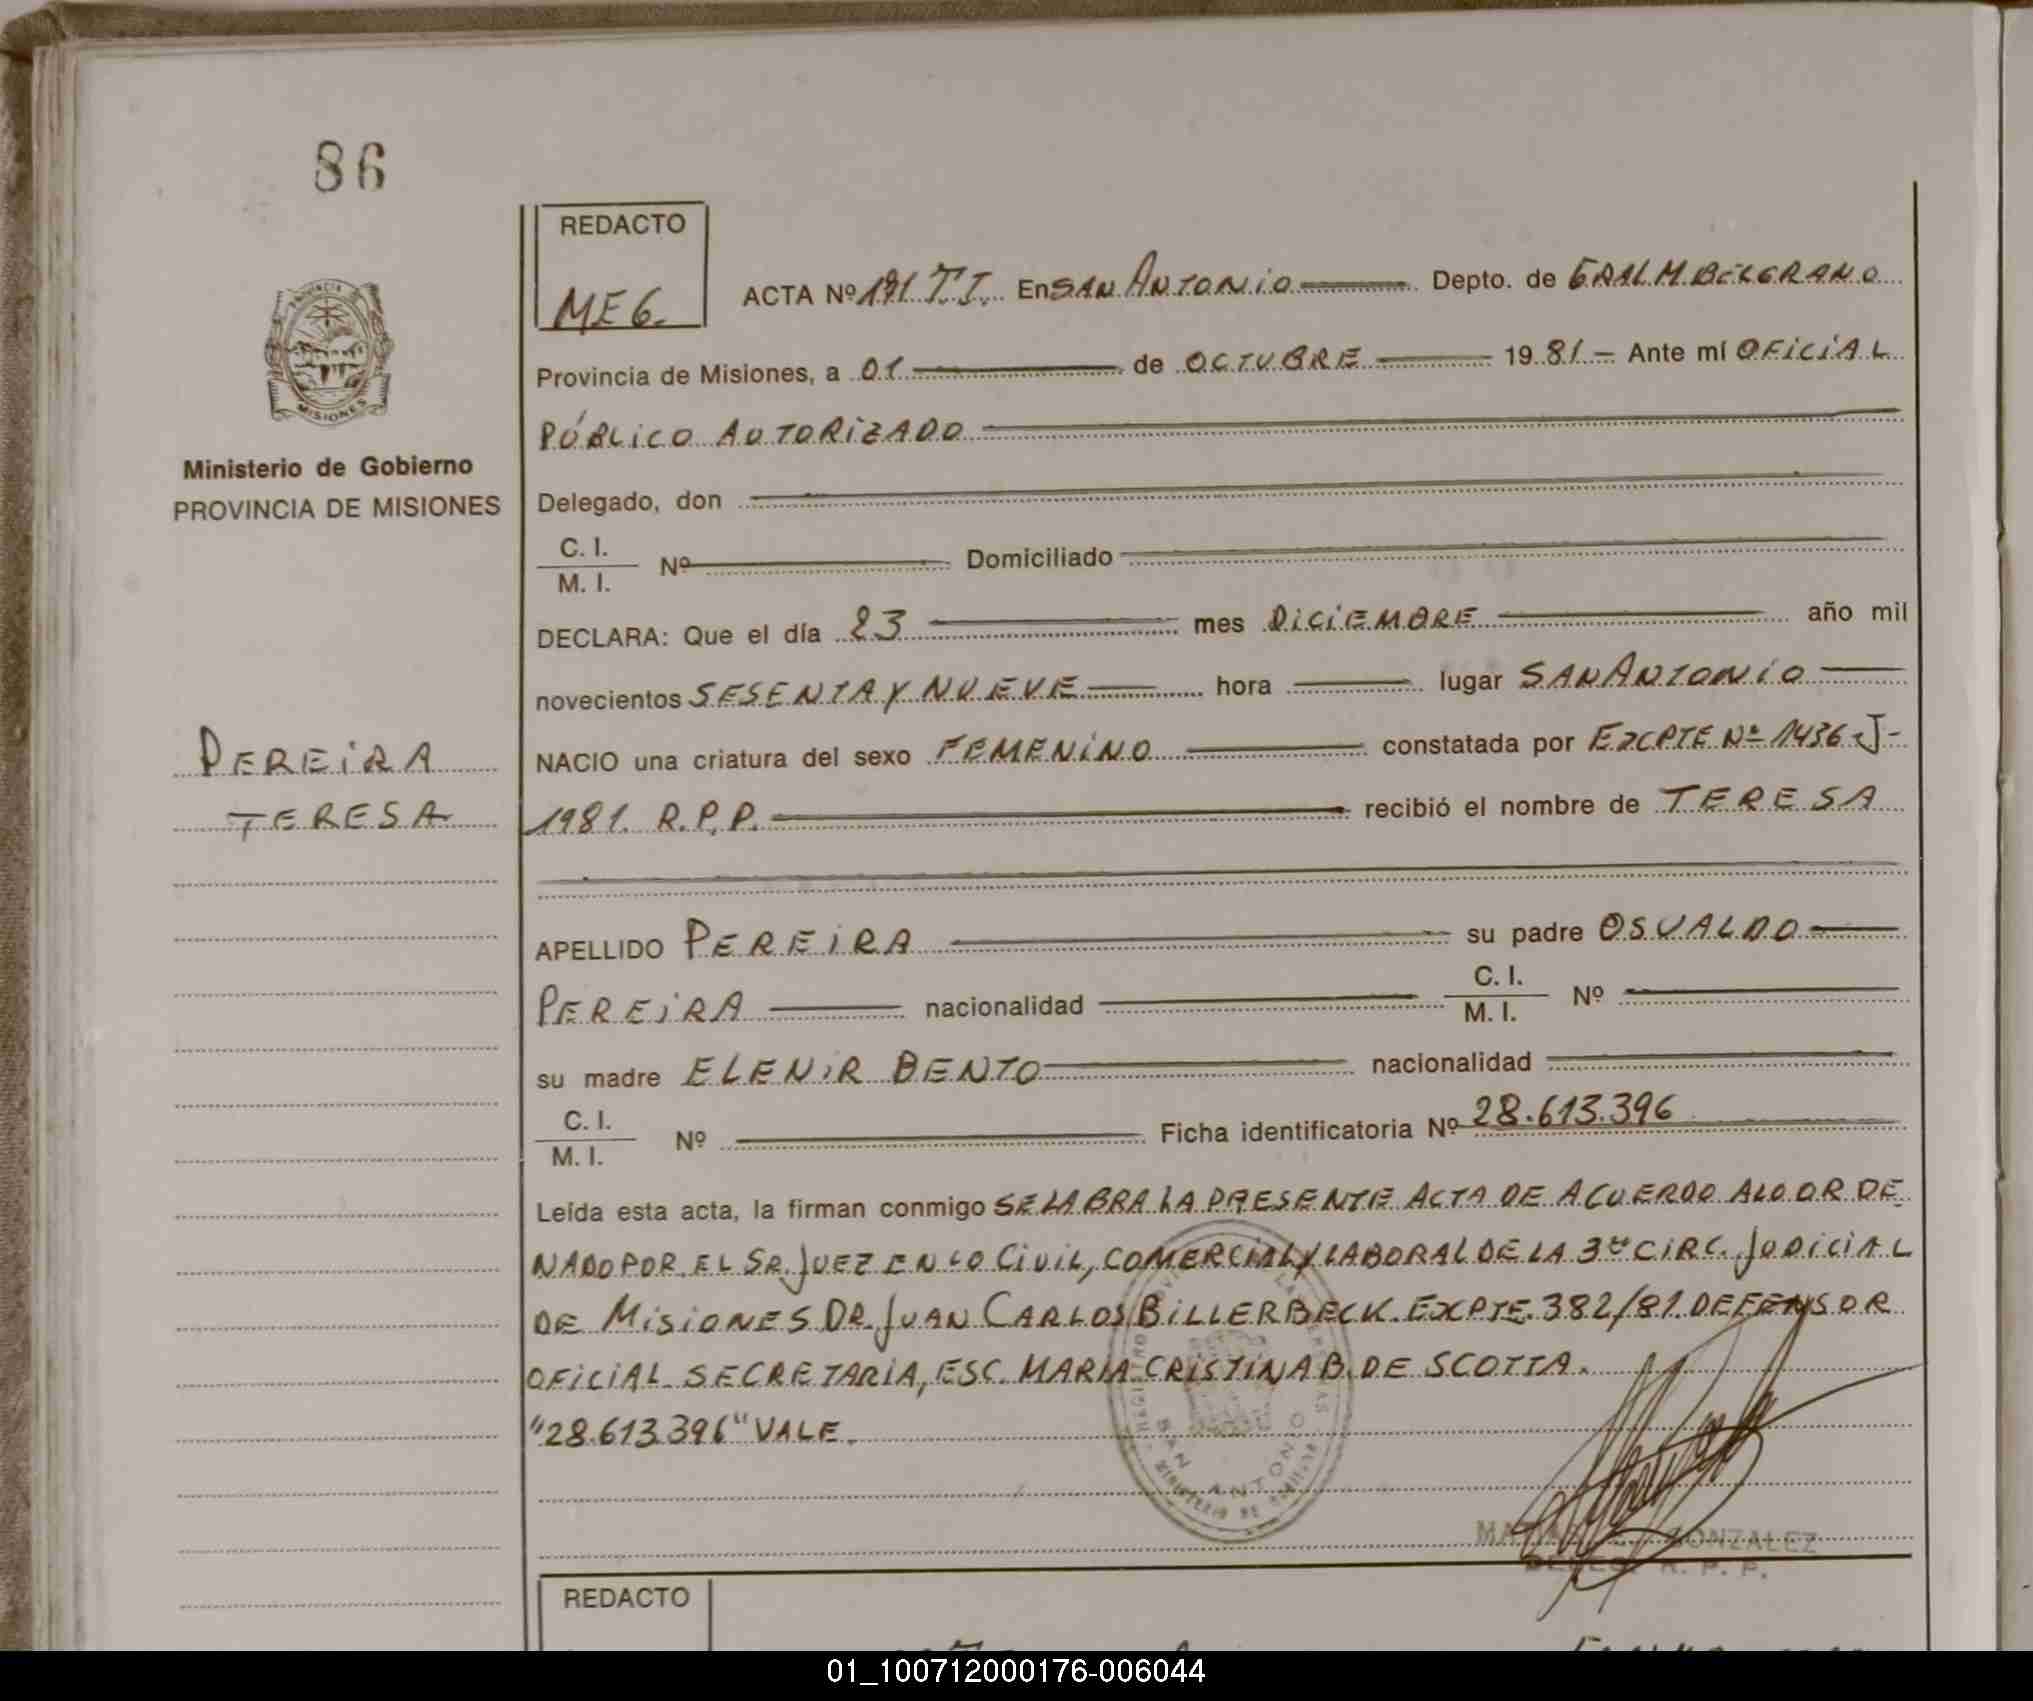 86
REDACTO
ME6.
ACTA Nº 191 T.I. En SAN ANTONIO Depto. de GRAL M. BELGRANO
Provincia de Misiones, a 01 de OCTUBRE 1981 - Ante mí OFICIAL
PÚBLICO AUTORIZADO
Ministerio de Gobierno
PROVINCIA DE MISIONES
Delegado, don
C. I.
M. I. Nº Domiciliado
DECLARA: Que el día 23 mes DICIEMBRE año mil
novecientos SESENTA Y NUEVE hora lugar SAN ANTONIO
PEREIRA
TERESA
NACIO una criatura del sexo FEMENINO constatada por EXCPTE Nº 1436-J-
1981. R.P.P. recibió el nombre de TERESA
APELLIDO PEREIRA su padre OSVALDO
PEREIRA nacionalidad C. I. M. I. Nº
su madre ELENIR BENTO nacionalidad
C. I.
M. I. Nº Ficha identificatoria Nº 28.613.396
Leída esta acta, la firman conmigo SE LABRA LA PRESENTE ACTA DE ACUERDO A LO ORDE
NADO POR EL SR. JUEZ EN LO CIVIL, COMERCIAL Y LABORAL DE LA 3ra CIRC. JUDICIAL
DE MISIONES DR. JUAN CARLOS BILLERBECK. EXPTE. 382/81. DEFENSOR
OFICIAL SECRETARIA, ESC. MARIA CRISTINA B. DE SCOTTA.
"28.613.396" VALE.
SAN ANTONIO
GONZALEZ
R. P. P.
REDACTO
01_100712000176-006044